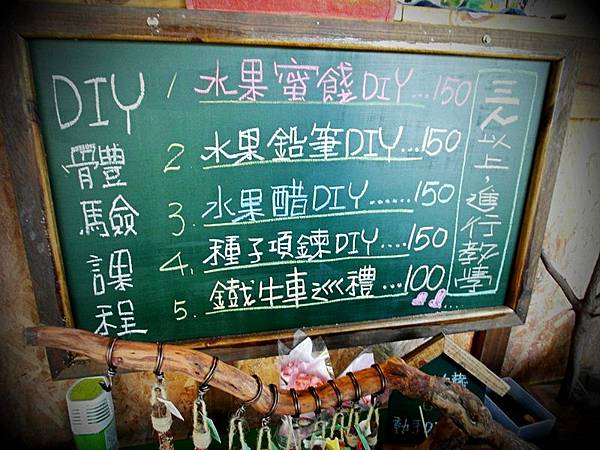 DIY
體
驗
課
程
1 水果蜜餞DIY...150
2. 水果鉛筆DIY...150
3. 水果醋DIY......150
4. 種子項鍊DIY....150
5. 鐵牛車巡禮...100
三人以上，進行教學